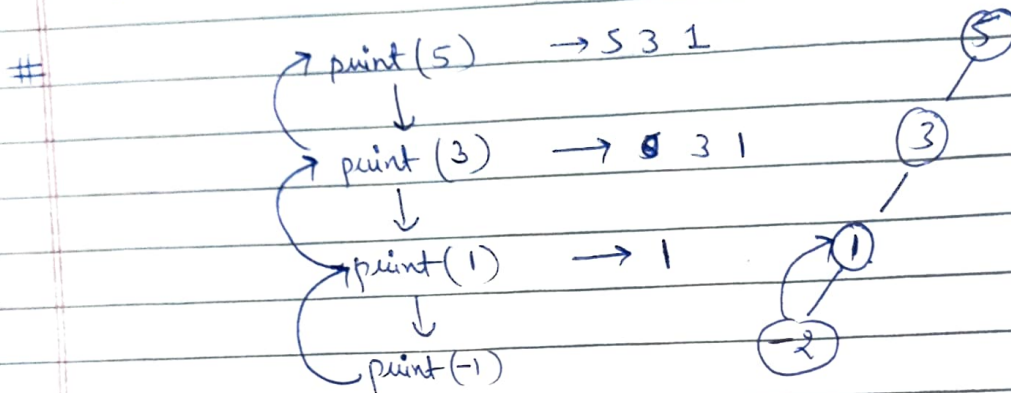 # print(5) → 5 3 1
5
↓
print(3) → 3 1
3
↓
print(1) → 1
1
↓
print(-1)
-2